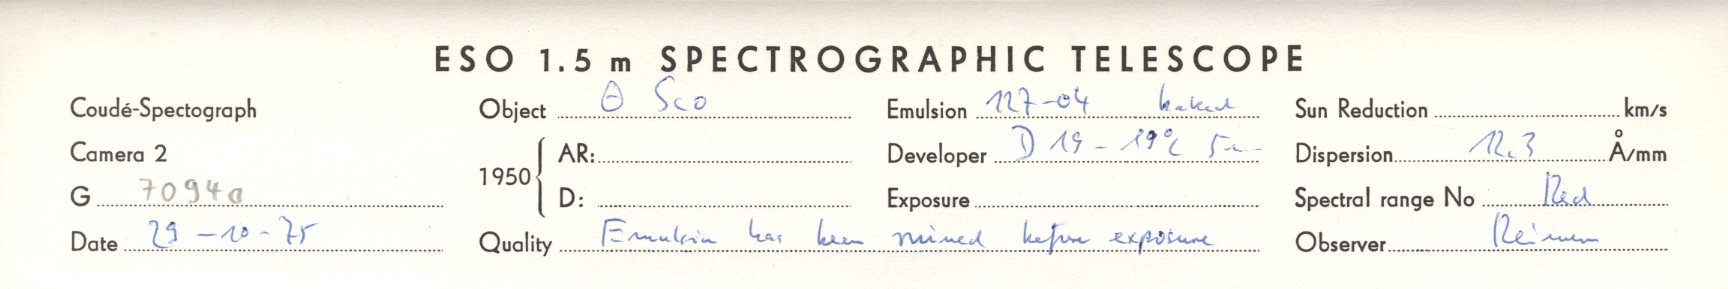 ESO 1.5 m SPECTROGRAPHIC TELESCOPE
Coudé-Spectograph Object Θ Sco Emulsion 127-04 baked Sun Reduction km/s
Camera 2 AR: Developer D 19 - 19°C 5m Dispersion 12.3 Å/mm
1950
G 7094a D: Exposure Spectral range No Red
Date 29-10-75 Quality Emulsion has been ruined before exposure Observer